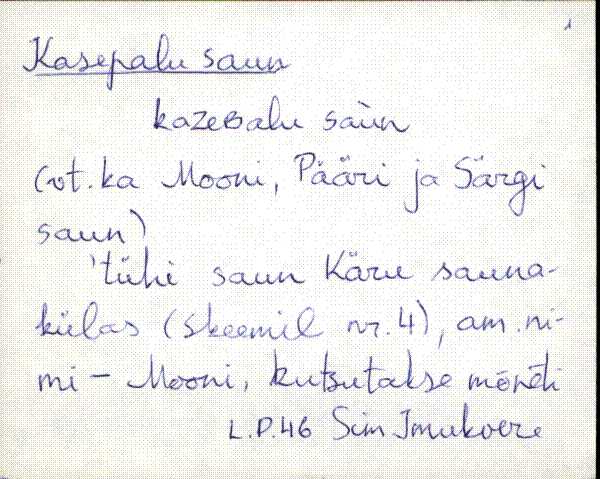 Kasepalu saun
kazeBalu saùn
(vt. ka Mooni, Pääri ja Särgi
saun)
'tühi saun Käru sauna-
külas (skeemil nr. 4), am. ni-
mi – Mooni, kutsutakse mõnèti
L.P.46 Sim Imukvere